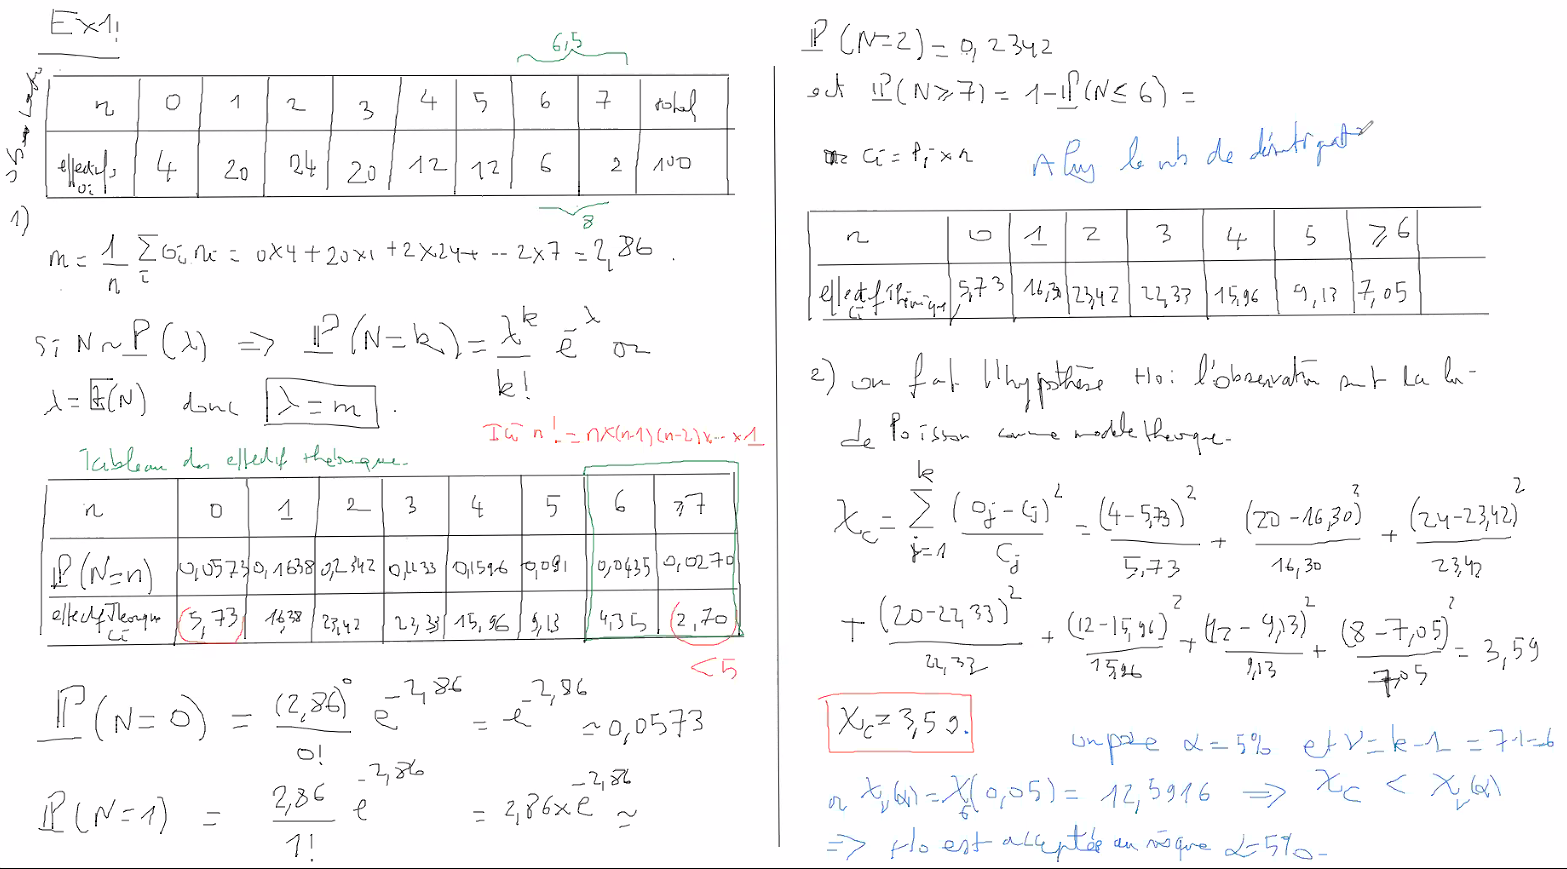 Ex1!
6,5
n 0 1 2 3 4 5 6 7 total
effectifs oi 4 20 24 20 12 12 6 2 100
8
1)
m = 1/n Σ_i oi ni = 0x4 + 20x1 + 2x24 + ... 2x7 = 2,86.
Si N ~ P(λ) => P(N=k) = λ^k/k! e^-λ or
λ = E(N) donc λ = m.
Ici n! = n x (n-1)(n-2) x ... x 1
Tableau des effectif théorique.
n 0 1 2 3 4 5 6 ≥7
P(N=n) 0,0573 0,1638 0,2342 0,2233 0,1596 0,091 0,0435 0,0270
effectif Théorique Ci 5,73 16,38 23,42 22,33 15,96 9,13 4,35 2,70
<5
P(N=0) = (2,86)^0/0! e^-2,86 = e^-2,86 ≃ 0,0573
P(N=1) = 2,86/1! e^-2,86 = 2,86 x e^-2,86 ≃
P(N=2) = 0,2342
et P(N≥7) = 1 - P(N≤6) =
Ci = Pi x n
le nb de
n 0 1 2 3 4 5 ≥6
effectif Théorique Ci 5,73 16,30 23,42 22,33 15,96 9,13 7,05
2) on fait l'hypothèse Ho: l'observation suit la loi
de Poisson comme modèle théorique.
χc = Σ_{j=1}^k (Oj - Cj)²/Cj = (4-5,73)²/5,73 + (20-16,30)²/16,30 + (24-23,42)²/23,42
+ (20-22,33)²/22,33 + (12-15,96)²/15,96 + (12-9,13)²/9,13 + (8-7,05)²/7,05 = 3,59
χc = 3,59.
on pose α = 5% et ν = k-1 = 7-1 = 6
or χν(α) = χ6(0,05) = 12,5916 => χc < χν(α)
=> Ho est acceptée au risque α = 5%.